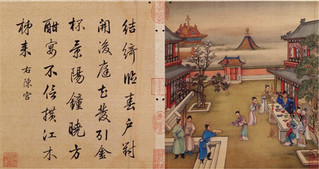 結綺臨春戶對
開後庭花發引金
杯景陽鐘曉方
酣宴不信橫江木
柹来 右陳宮